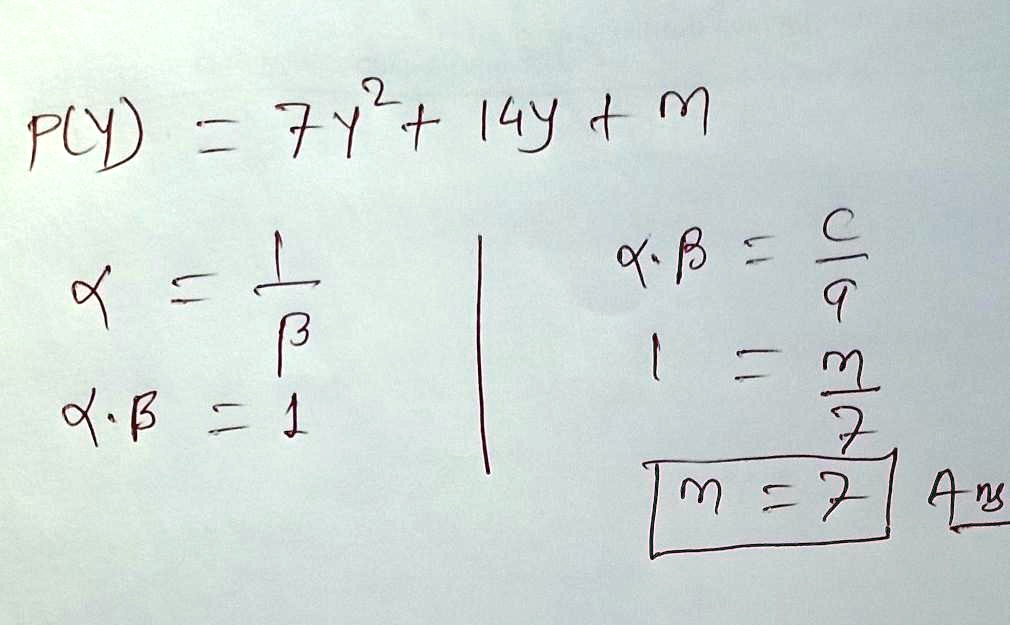 P(Y) = 7y² + 14y + m
α = 1/β
α.β = 1
α.β = c/a
1 = m/7
m = 7 Ans